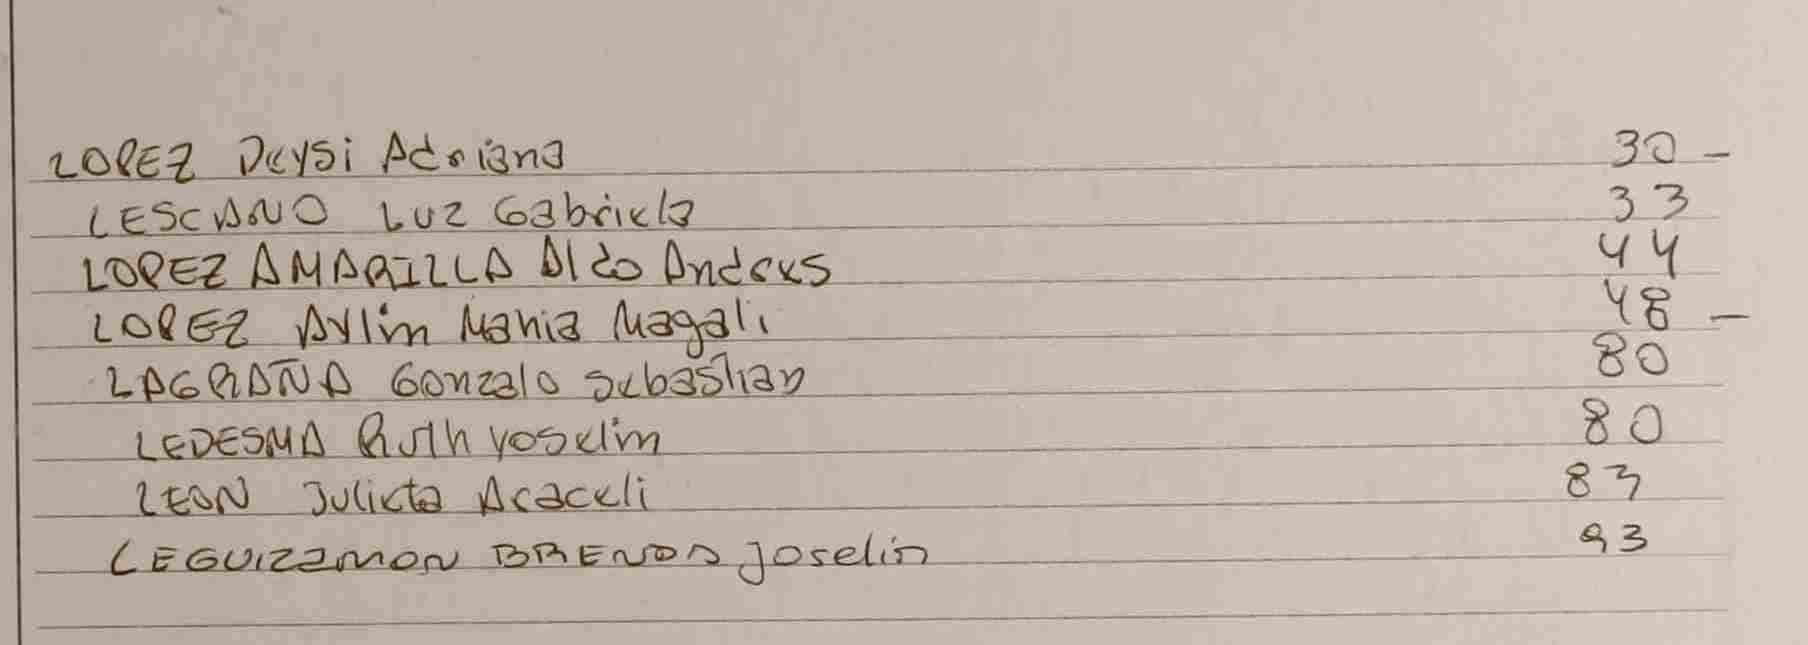 LOPEZ Deysi Adriana 30 -
LESCANO LUZ Gabriela 33
LOPEZ AMARILLA Aldo Andres 44
LOPEZ Aylim Maria Magali 48 -
LAGRAÑA Gonzalo Sebastian 80
LEDESMA Ruth Yoselim 80
LEON Julieta Araceli 83
LEGUIZAMON BRENDA Joselin 93